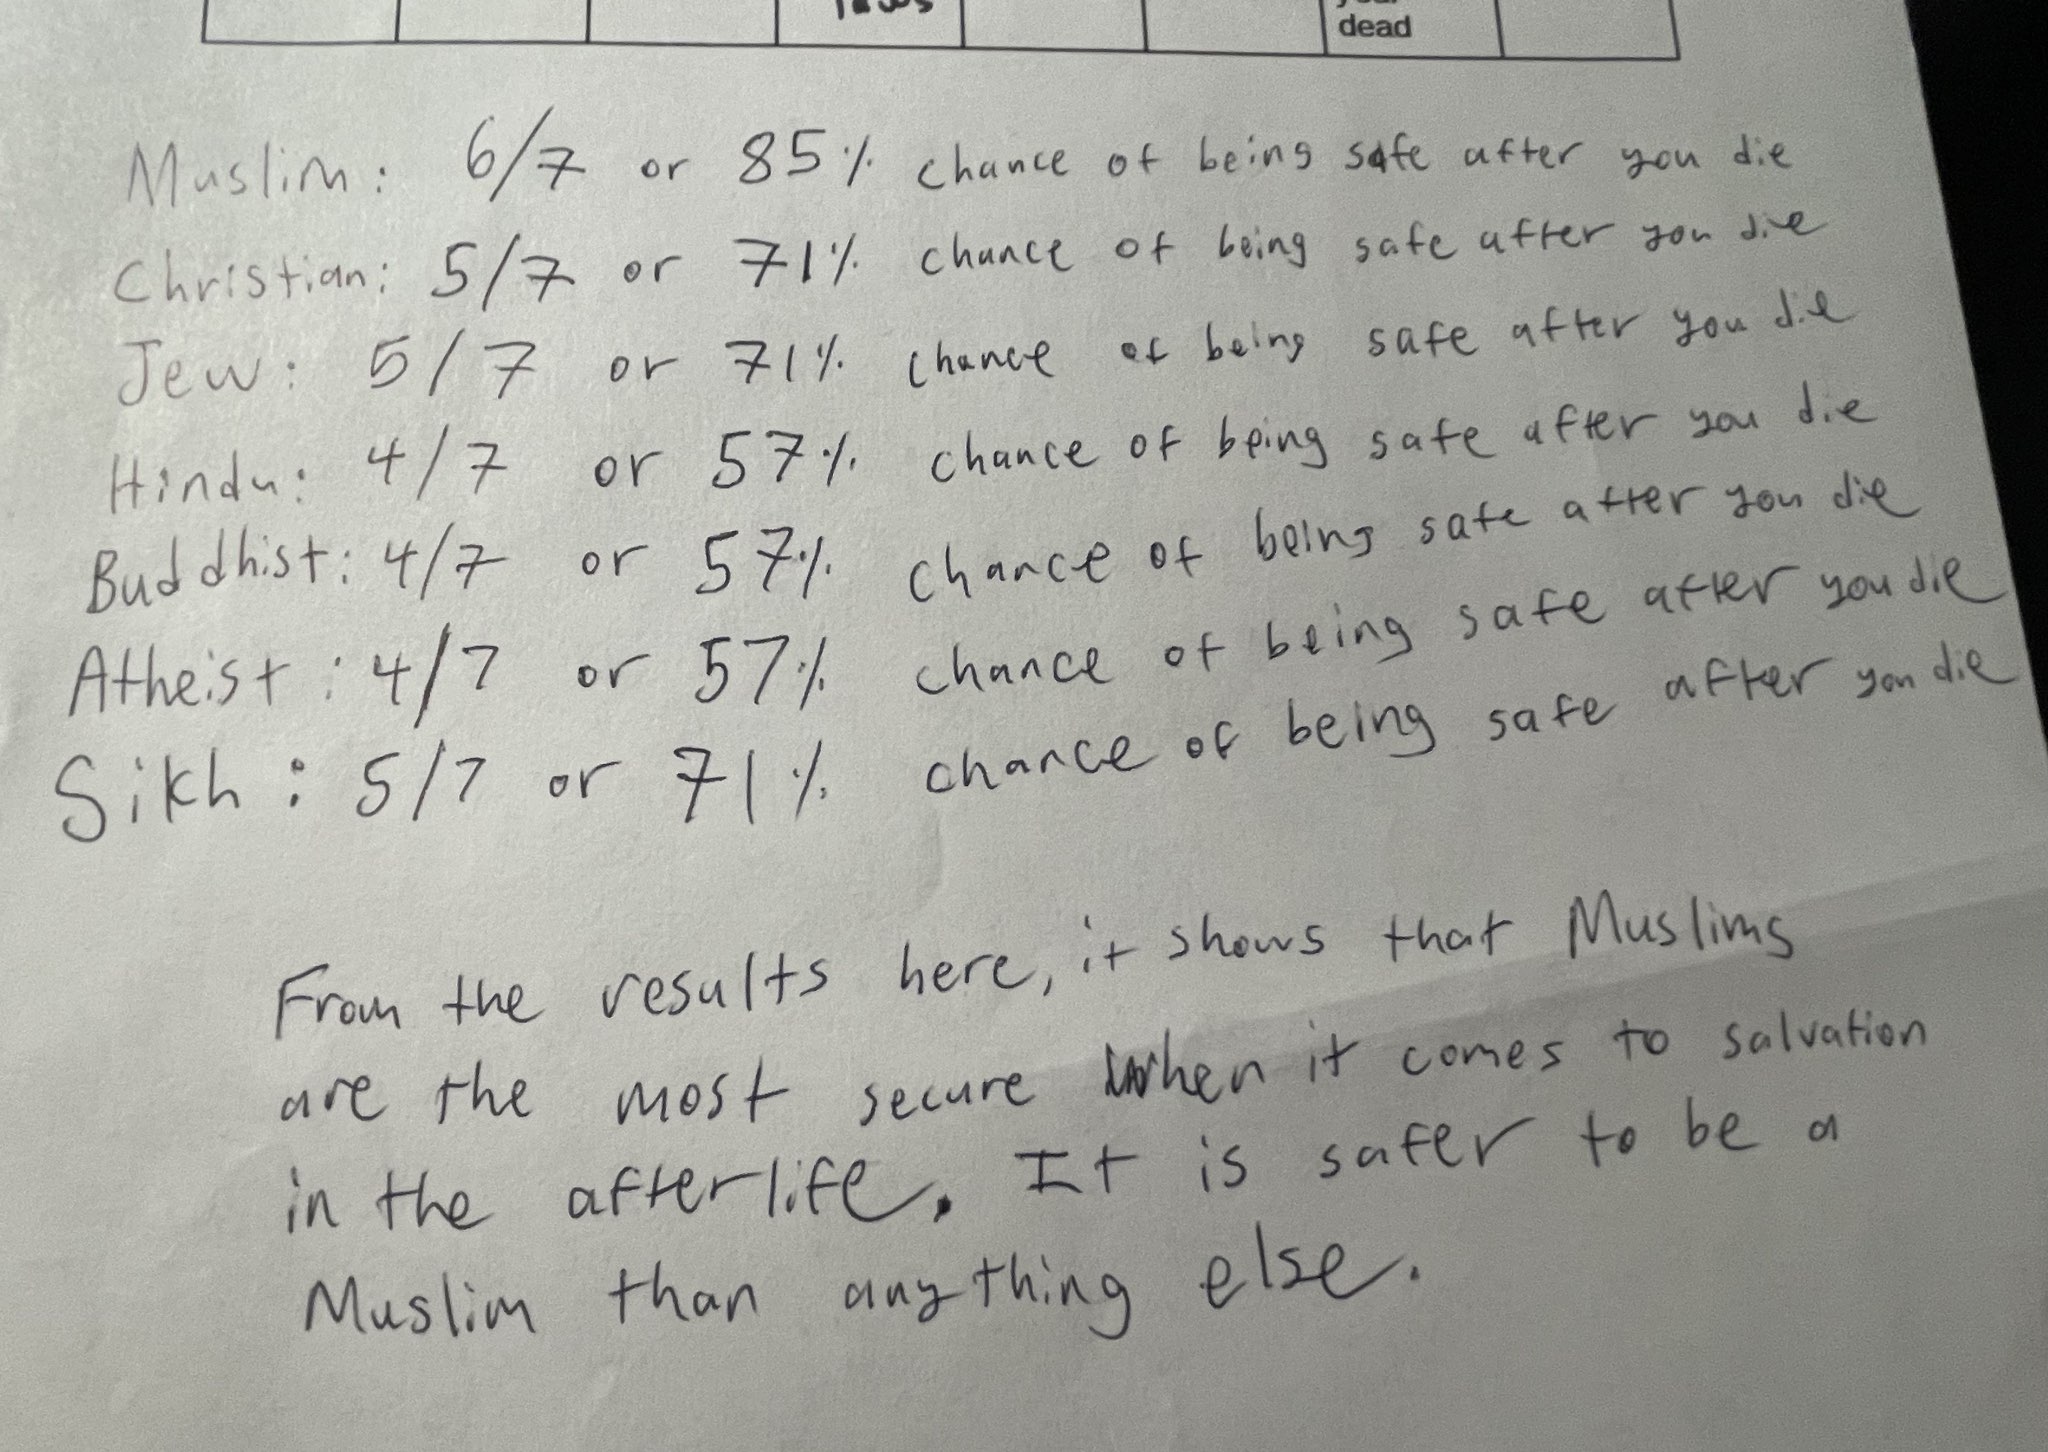 dead
Muslim: 6/7 or 85% chance of being safe after you die
Christian: 5/7 or 71% chance of being safe after you die
Jew: 5/7 or 71% chance of being safe after you die
Hindu: 4/7 or 57% chance of being safe after you die
Buddhist: 4/7 or 57% chance of being safe after you die
Atheist: 4/7 or 57% chance of being safe after you die
Sikh: 5/7 or 71% chance of being safe after you die
From the results here, it shows that Muslims
are the most secure when it comes to salvation
in the afterlife. It is safer to be a
Muslim than anything else.